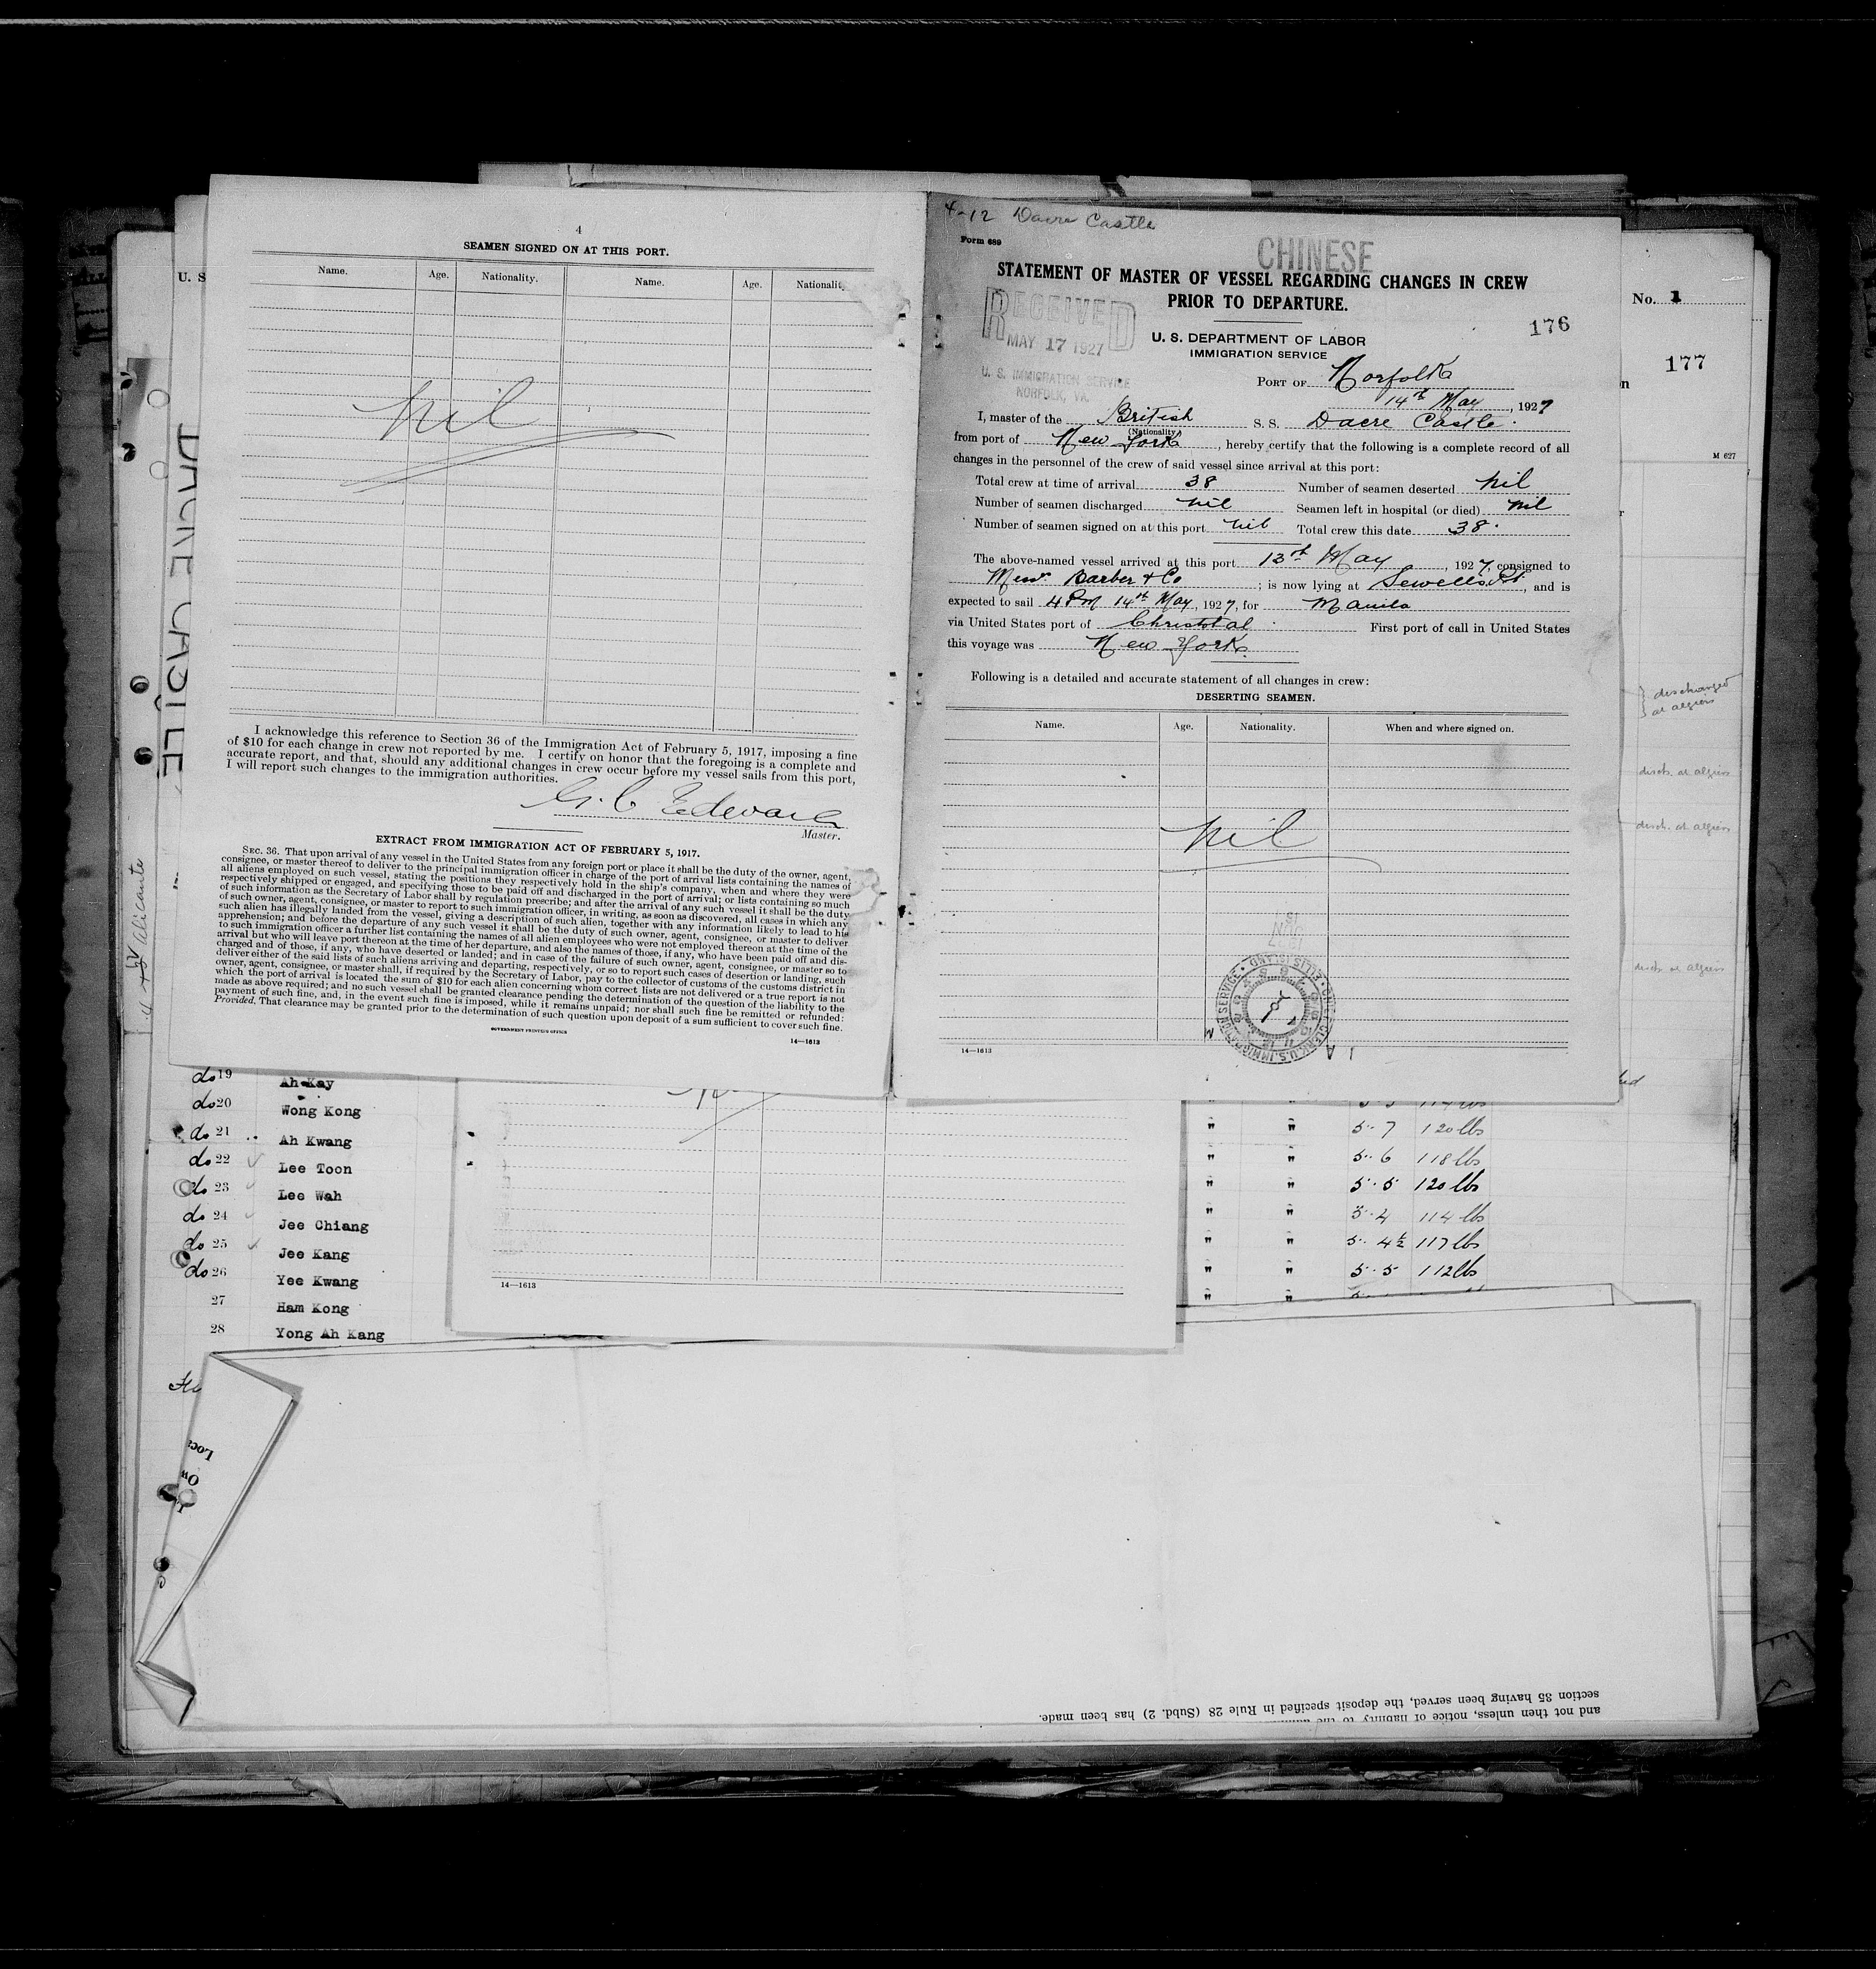 4
SEAMEN SIGNED ON AT THIS PORT.
Name. Age. Nationality. Name. Age. Nationalit
nil
I acknowledge this reference to Section 36 of the Immigration Act of February 5, 1917, imposing a fine
of $10 for each change in crew not reported by me. I certify on honor that the foregoing is a complete and
accurate report, and that, should any additional changes in crew occur before my vessel sails from this port,
I will report such changes to the immigration authorities.
G. C. Edwards
Master.
EXTRACT FROM IMMIGRATION ACT OF FEBRUARY 5, 1917.
SEC. 36. That upon arrival of any vessel in the United States from any foreign port or place it shall be the duty of the owner, agent,
consignee, or master thereof to deliver to the principal immigration officer in charge of the port of arrival lists containing the names of
all aliens employed on such vessel, stating the positions they respectively hold in the ship's company, when and where they were
respectively shipped or engaged, and specifying those to be paid off and discharged in the port of arrival; or lists containing so much
of such information as the Secretary of Labor shall by regulation prescribe; and after the arrival of any such vessel it shall be the duty
of such owner, agent, consignee, or master to report to such immigration officer, in writing, as soon as discovered, all cases in which any
such alien has illegally landed from the vessel, giving a description of such alien, together with any information likely to lead to his
apprehension; and before the departure of any such vessel it shall be the duty of such owner, agent, consignee, or master to deliver
to such immigration officer a further list containing the names of all alien employees who were not employed thereon at the time of the
arrival but who will leave port thereon at the time of her departure, and also the names of those, if any, who have been paid off and dis-
charged and of those, if any, who have deserted or landed; and in case of the failure of such owner, agent, consignee, or master so to
deliver either of the said lists of such aliens arriving and departing, respectively, or so to report such cases of desertion or landing, such
owner, agent, consignee, or master shall, if required by the Secretary of Labor, pay to the collector of customs of the customs district in
which the port of arrival is located the sum of $10 for each alien concerning whom correct lists are not delivered or a true report is not
made as above required; and no such vessel shall be granted clearance pending the determination of the question of the liability to the
payment of such fine, and, in the event such fine is imposed, while it remains unpaid; nor shall such fine be remitted or refunded:
Provided, That clearance may be granted prior to the determination of such question upon deposit of a sum sufficient to cover such fine.
GOVERNMENT PRINTING OFFICE
14—1613
4-12 Dacre Castle
Form 689
CHINESE
STATEMENT OF MASTER OF VESSEL REGARDING CHANGES IN CREW
PRIOR TO DEPARTURE.
RECEIVED
MAY 17 1927
U. S. IMMIGRATION SERVICE
NORFOLK, VA.
176
U. S. DEPARTMENT OF LABOR
IMMIGRATION SERVICE
PORT OF Norfolk
14th May, 1927
I, master of the British S. S. Dacre Castle.
(Nationality)
from port of New York, hereby certify that the following is a complete record of all
changes in the personnel of the crew of said vessel since arrival at this port:
Total crew at time of arrival 38 Number of seamen deserted nil
Number of seamen discharged nil Seamen left in hospital (or died) nil
Number of seamen signed on at this port nil Total crew this date 38.
The above-named vessel arrived at this port 13th May, 1927, consigned to
Messrs Barber & Co; is now lying at Sewells Pt, and is
expected to sail 4 PM 14th May, 1927, for Manila
via United States port of Christobal. First port of call in United States
this voyage was New York.
Following is a detailed and accurate statement of all changes in crew:
DESERTING SEAMEN.
Name. Age. Nationality. When and where signed on.
nil
CHIEF CLERK, U. S. IMMIGRATION SERVICE • ELLIS ISLAND •
14—1613
U. S
No. 1
177
M 627
DACRE CASTLE
Alicante
discharged
at algiers
disch. at algiers
disch. at algiers
disch at algiers
do 19 Ah Kay
do 20 Wong Kong
do 21 Ah Kwang " " 5-7 120 lbs
do 22 Lee Toon " " 5-6 118 lbs
do 23 Lee Wah " " 5-5 120 lbs
do 24 Jee Chiang " " 5-4 114 lbs
do 25 Jee Kang " " 5-4½ 117 lbs
do 26 Yee Kwang " " 5-5 112 lbs
27 Ham Kong " "
28 Yong Ah Kang
14—1613
and not then unless, notice of liability to
section 35 having been served, the deposit specified in Rule 28 (Subd. 2) has been made.